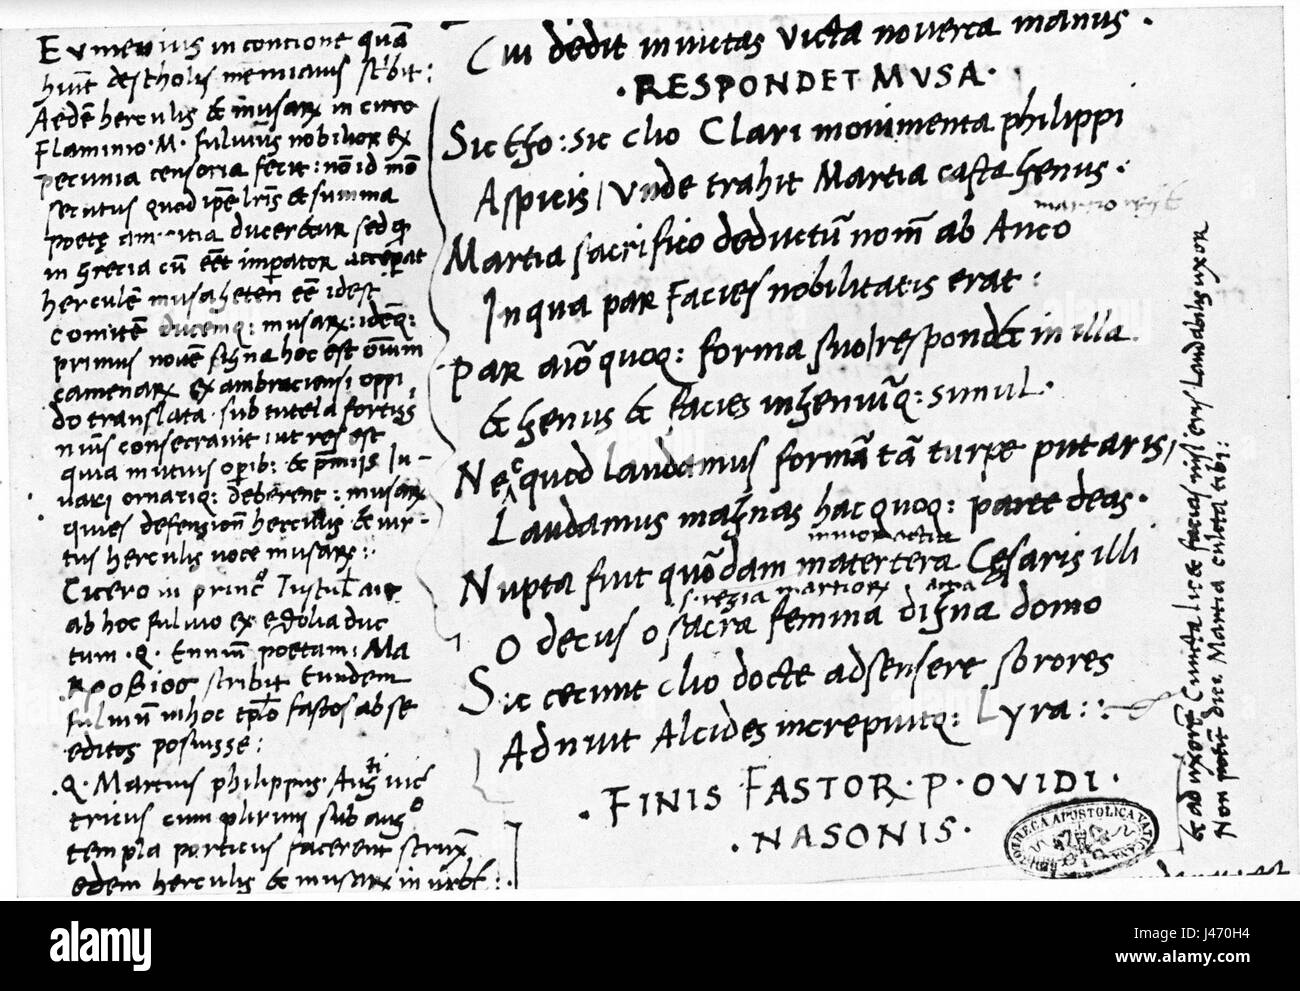 Eumenius in concione quã
hũt de scholis mẽnianis scribit:
Aedẽ herculis & musarꝝ in circo
Flaminio. M. fulvius nobilior ex
pecunia censoria fecit: nõ id mõ
secutus quod ipse lr̃is & summa
poetę amicitia duceretur sed ꝙ
in grecia cũ eẽt imperator acceperat
herculẽ musagetẽ eẽ idest
comitẽ ducemq: musarꝝ: idẽq:
primus novẽ signa hoc est oĩum
camenarꝝ ex ambraciensi oppi
do translata sub tutela fortiss
numinis consecravit ut res est
quia mutuis operib: & p̃miis Iu-
vari ornariq: deberent: musarꝝ
quies defensiõe herculis & vir-
tus herculis voce musarꝝ:
Cicero in princ̊ Tustul. ait
ab hoc fulvio ex etolia duc
tum. Q. Enniũ poetam: Ma
krobios scribit eundem
fulviũ in hoc tp̃lo fastos ab se
editos posuisse:
Q. Martius philippus Augti vic
tricus cum plurimi sub augo
templa porticus facerent struxͭ
edem herculis & musarꝝ in urbe:
Cui dedit invictas victa noverca manus.
.RESPONDET MVSA.
Sic ego: sic clio Clari monimenta philippi
Aspicis / Unde trahit Martia casta genus.
Martia sacrifico deductũ nom̃ ab Anco
In qua par facies nobilitatis erat:
par aĩo quoq: forma suo respondet in illa
& genus & facies ingeniũq: simul.
Nec quod laudamus formã tã turpe putaris,
Laudamus magnas hac quoq: parte deas.
Nupta fuit quõdam matertera Cęsaris illi
s. regia martiorꝝ
O decus o sacra femina digna domo
Sic cecinit clio docte adsensere sorores
Adnuit Alcides increpuitq: Lyra:
.FINIS FASTOR. P. OVIDI.
.NASONIS.
BIBLIOTHECA APOSTOLICA VATICANA
alamy
J470H4
www.alamy.com